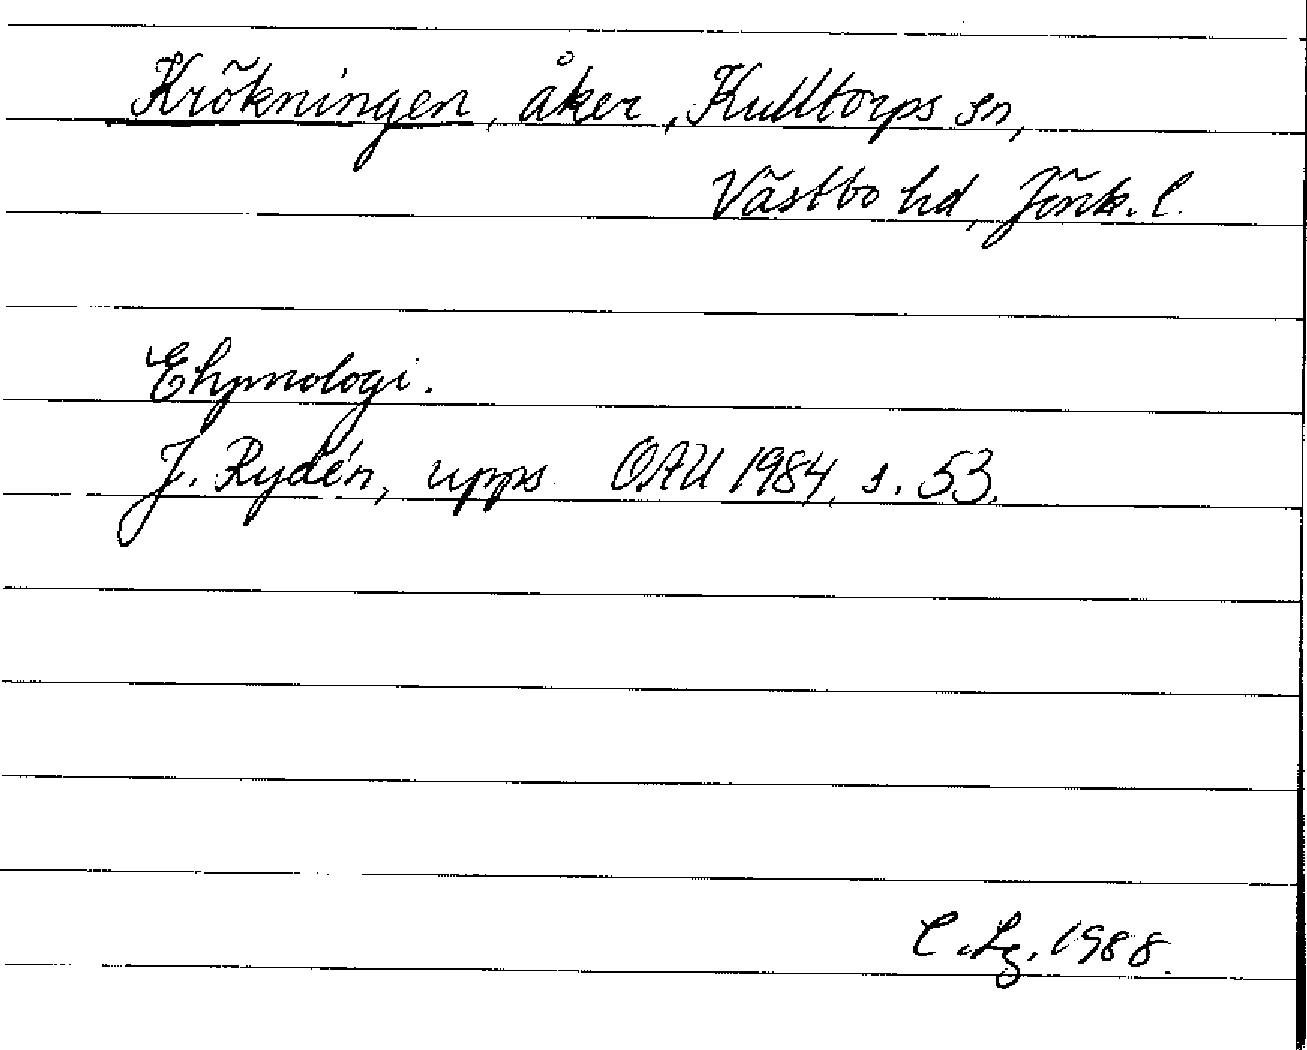 Krökningen, åker, Kulltorps sn,
Västbo hd, Jönk. l.
Etymologi.
J. Rydén, upps. OAU 1984, s. 53.
C. Lg. 1988.